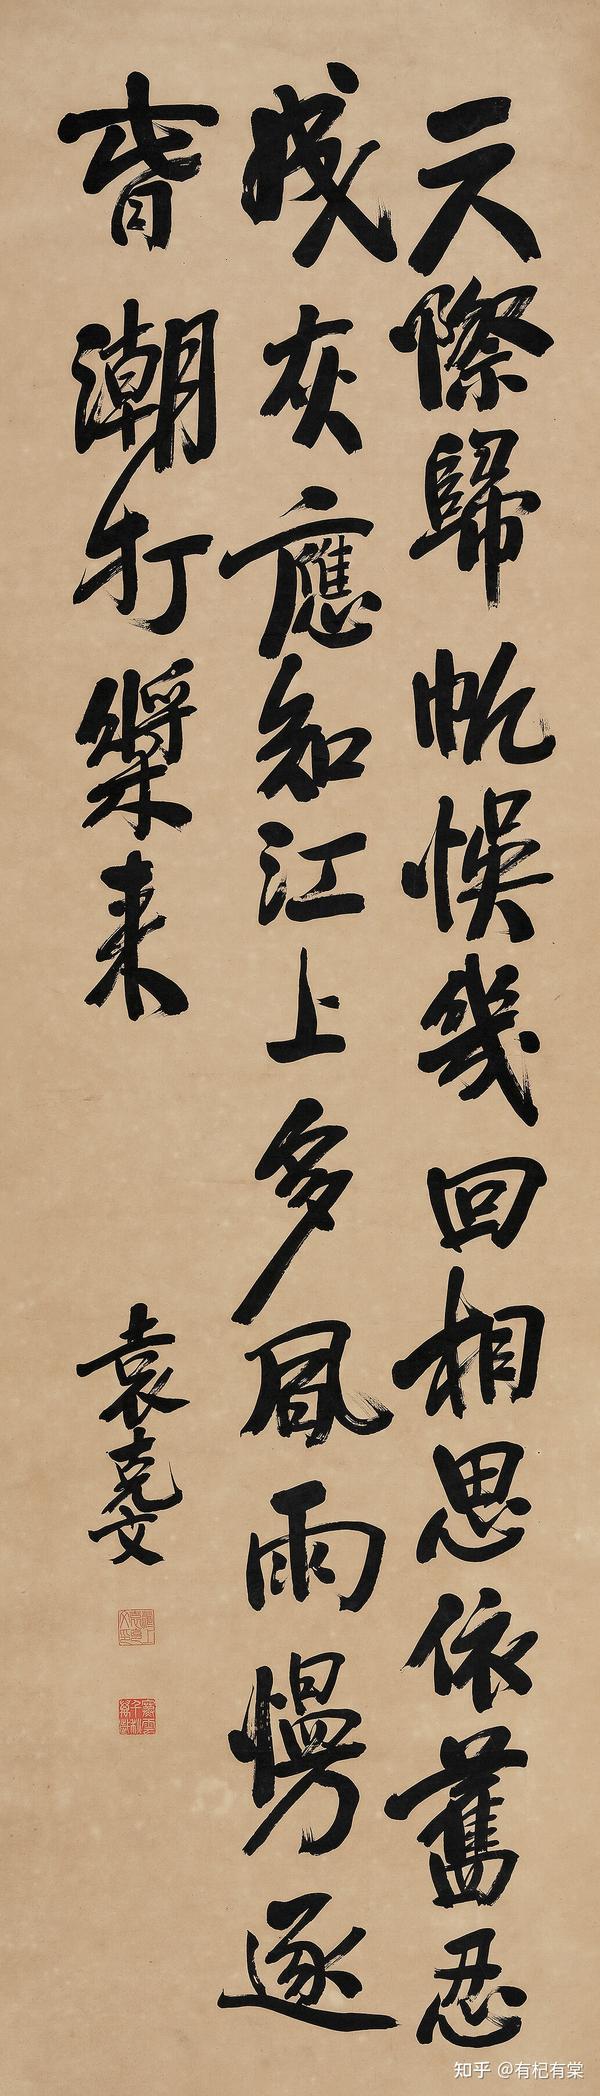 天際歸帆悞幾回相思依舊忍
成灰應知江上多風雨慢逐
旾潮打槳來
袁克文
知乎 @有杞有棠